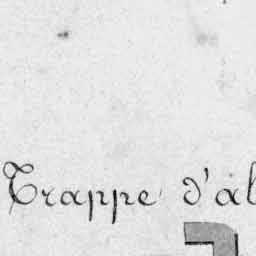 Trappe d'al